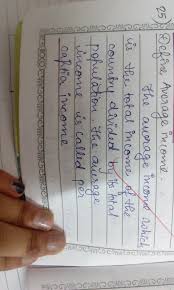 25) Define Average income.
The average income which
is the total income of the
country divided by its total
population. The average
income is called per
capita income